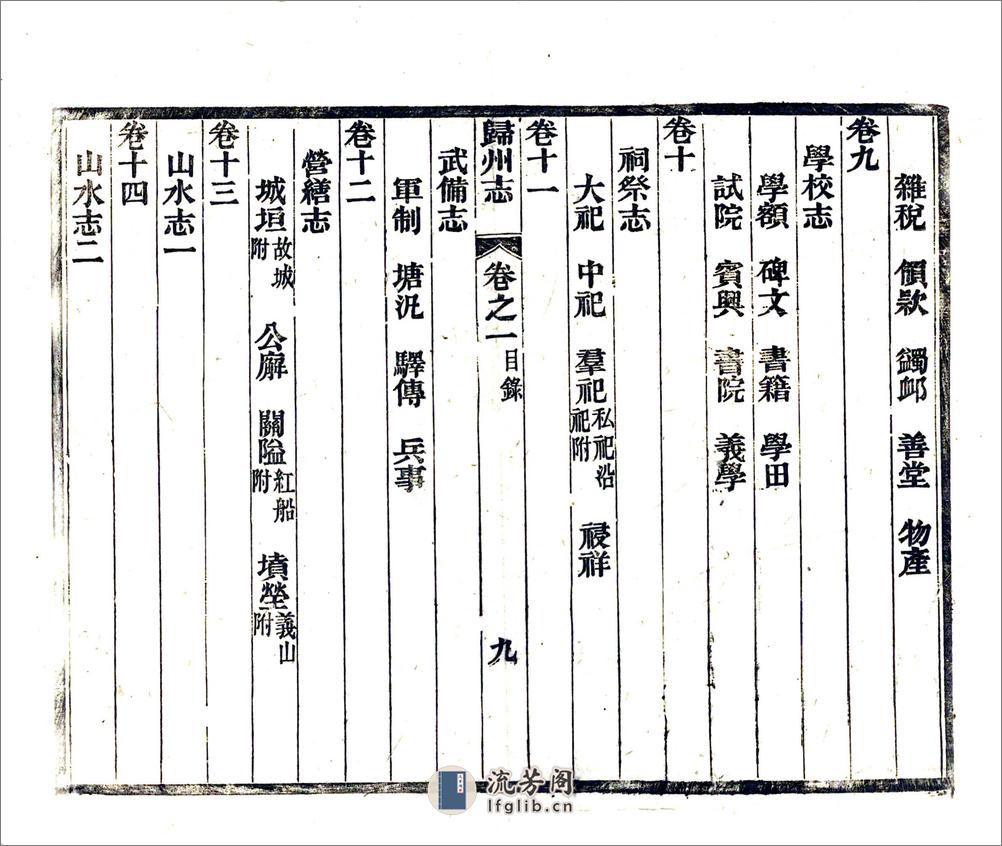 雜稅　領款　蠲卹　善堂　物產
卷九
學校志
學額　碑文　書籍　學田
試院　賓興　書院　義學
卷十
祠祭志
大祀　中祀　羣祀私祀沿祀附　祲祥
卷十一
歸州志　卷之一目錄　九
武備志
軍制　塘汛　驛傳　兵事
卷十二
營繕志
城垣故城附　公廨　關隘紅船附　墳塋義山附
卷十三
山水志一
卷十四
山水志二
流芳阁
lfglib.cn